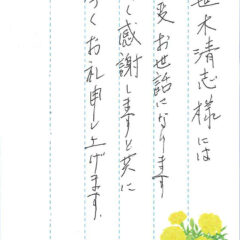 世木清志様には
変お世話になります
く感謝しますと共に
くお礼申し上げます.